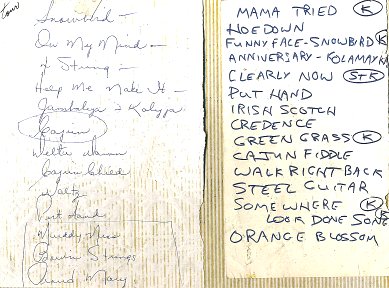 Snowbird -
On My Mind -
Strings -
Help Me Make It -
Jambalaya - Kalijah
Cajun
Cajun Child
Waltz
Put Hand
Muddy Miss
Cajun Strings
Proud Mary
MAMA TRIED K
HOEDOWN
FUNNY FACE-SNOWBIRD K
ANNIVERSARY-FOLAMAY K
CLEARLY NOW STK
PUT HAND
IRISH SCOTCH
CREDENCE
GREEN GRASS K
CAJUN FIDDLE
WALK RIGHT BACK
STEEL GUITAR
SOMEWHERE K
LOOK DONE SONE K
ORANGE BLOSSOM